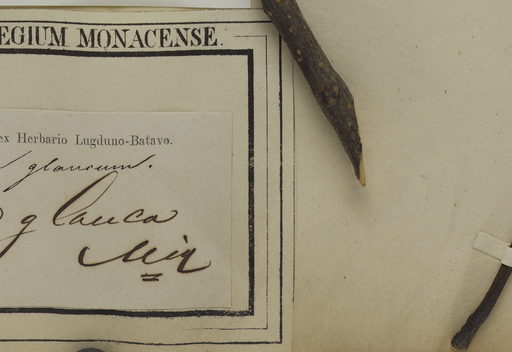 EGIUM MONACENSE.
ex Herbario Lugduno-Batavo.
glaucum.
glauca
Miq